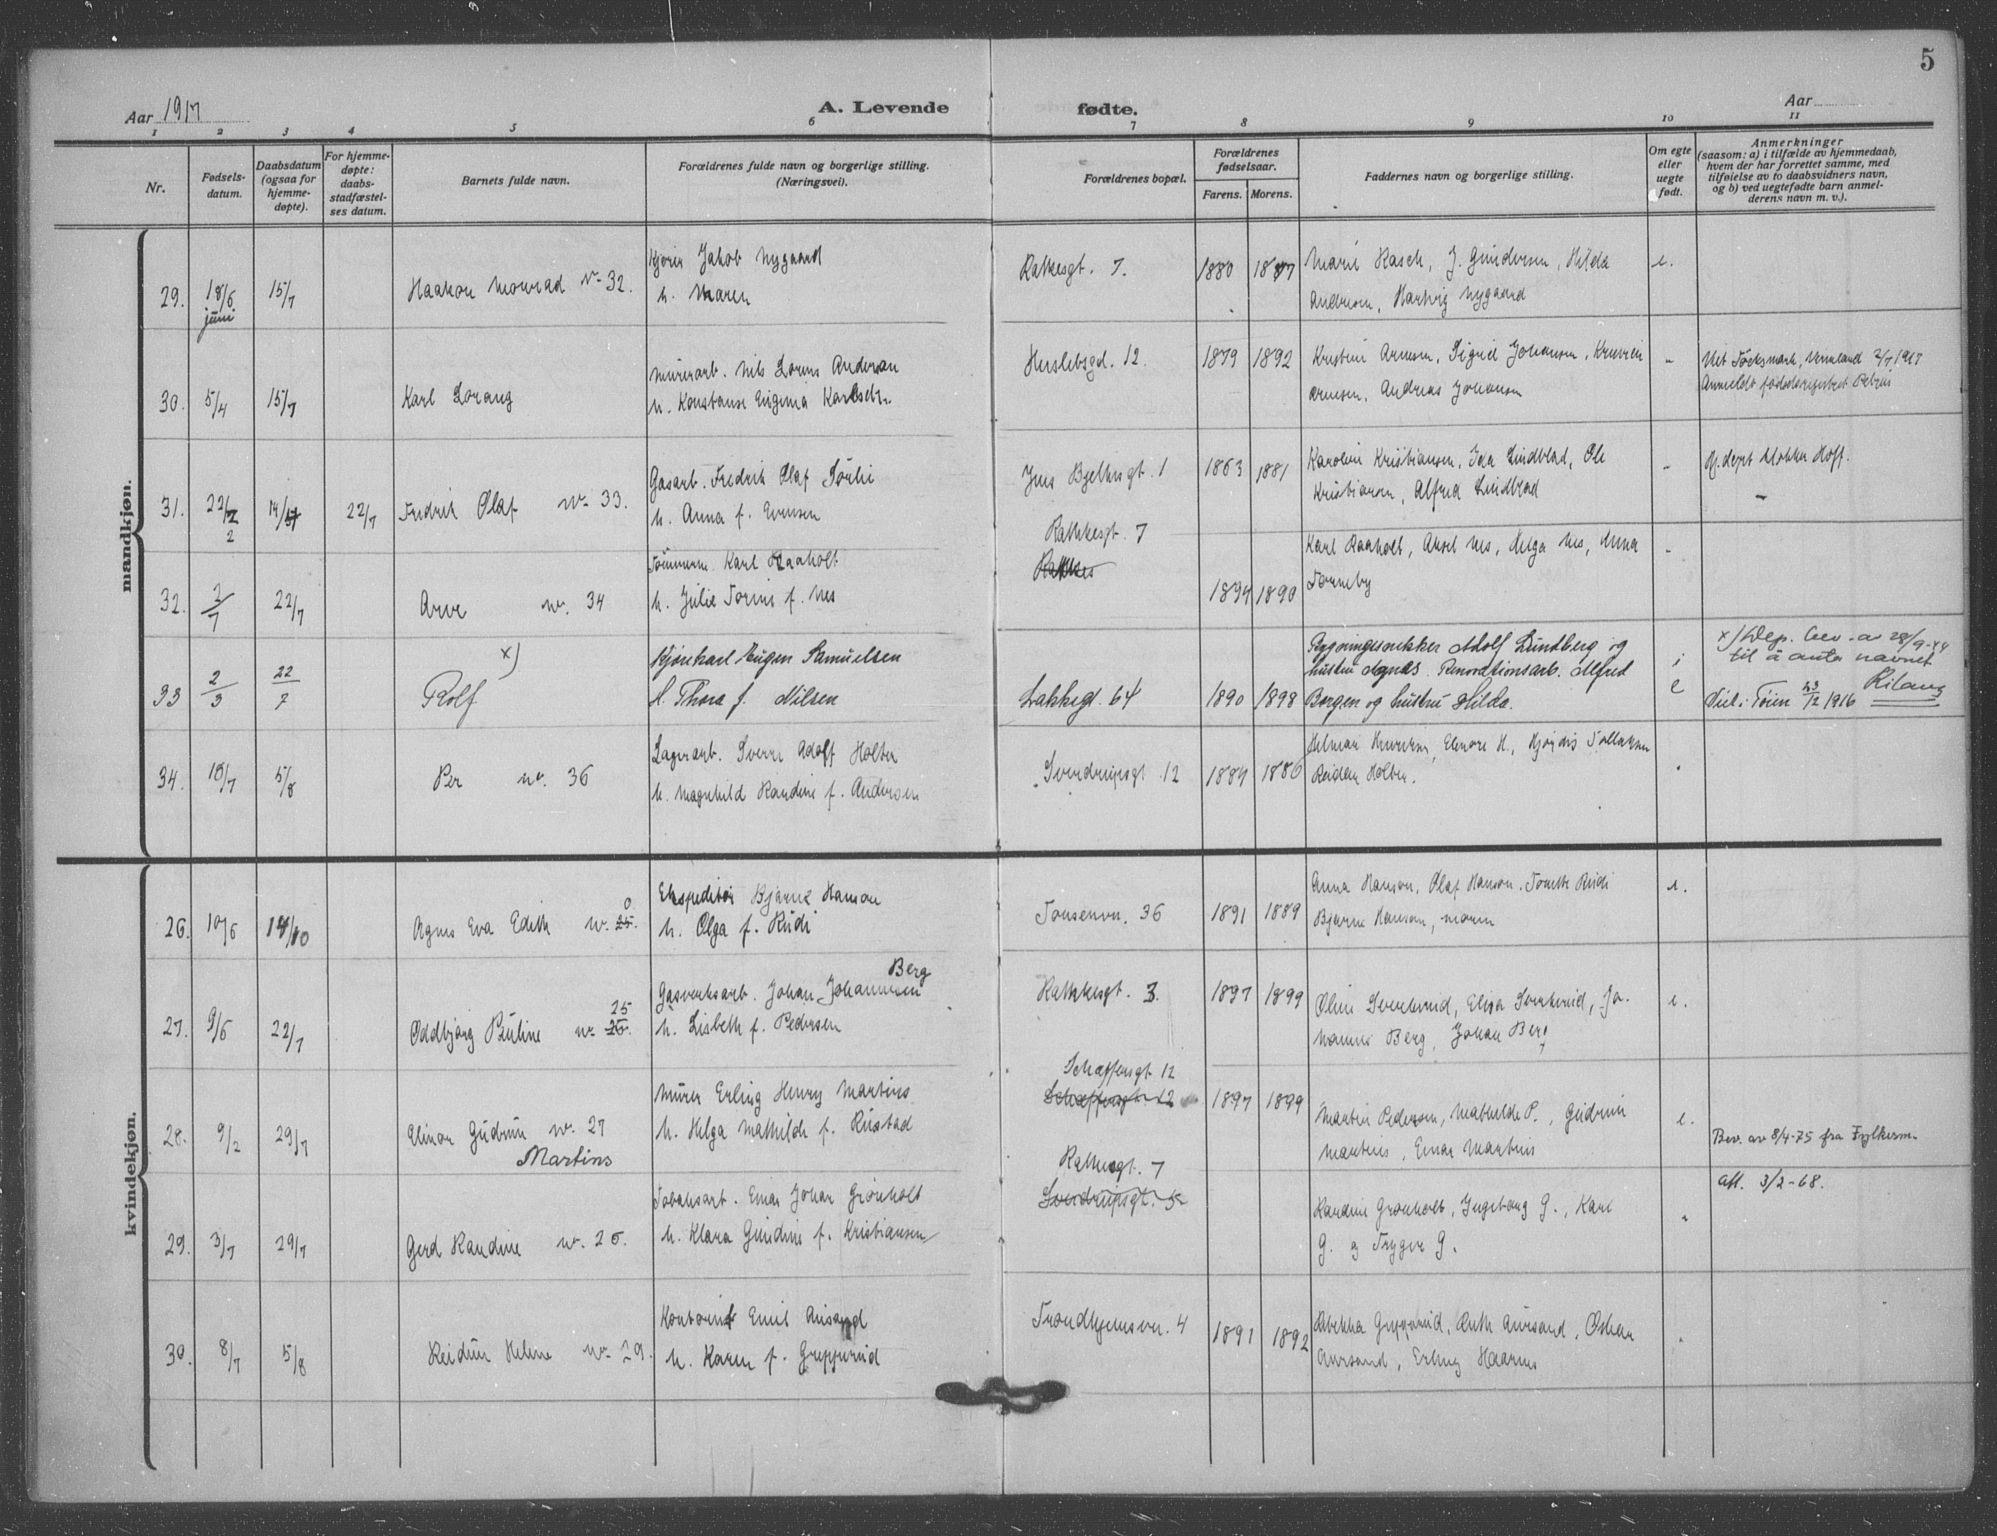 5
Aar 1917
A. Levende
fødte.
Aar
1 2 3 4 5 6 7 8 9 10 11
Nr.
Fødsels-
datum.
Daabsdatum
(ogsaa for
hjemme-
døpte).
For hjemme-
døpte:
daabs-
stadfæstel-
ses datum.
Barnets fulde navn.
Forældrenes fulde navn og borgerlige stilling.
(Næringsvei).
Forældrenes bopæl.
Forældrenes
fødselsaar.
Farens. Morens.
Faddernes navn og borgerlige stilling.
Om egte
eller
uegte
født.
Anmerkninger
(saasom: a) i tilfælde av hjemmedaab,
hvem der har forrettet samme, med
tilføielse av to daabsvidners navn,
og b) ved uegtefødte barn anmel-
derens navn m. v.).
mandkjøn.
29. 18/6 15/7 Haakon Monrad nr. 32.
juni
Jakob Nygaard
h. Maren
Rathkesgt. 7. 1880 1887
Marie Rasch, J. Gundersen, Hilda
Andresen, Hartvig Nygaard
e.
30. 5/4 15/7 Karl Lorang
Murerarb. Nils Lorens Anderson
h. Konstanse Eugenia
Herslebsgd. 12. 1879 1892
Kristine Arnesen, Sigrid Johansen,
Arnesen, Andreas Johansen
"
Värmland 2/7 1917
Anmeldt fødselsregistret
31. 22/2 14/ 22/7 Fredrik Olaf nr. 33.
2
Gasarb. Fredrik Olaf Sørlie
h. Anna f. Evensen
Jens Bjelkesgt. 1 1863 1881
Karoline Kristiansen, Ida Lindblad, Ole
Kristiansen, Alfred Lindblad
"
Hj. døpt klokker Hoff.
32. 2/7 22/7 Arve nr. 34
Tømmerm. Karl Raaholt
h. Julie Torine f. Nes
Rathkesgt. 7
Rathkes
1894 1890
Karl Raaholt, Aksel Nes, Helga Nes, Anna
Torneby
"
33 2/3 22/7 x) Rolf
Kjørekarl Eugen Samuelsen
H. Thora f. Nilsen
Lakkegd. 64 1890 1898
Bygningssnekker Adolf Lundberg og
hustru Agnes. Renovationsarb. Alfred
Borgen og hustru Hilda.
e
x) Dep. bev. av 28/9-44
til å anta navnet
Rilang
Viel i Tøien 23/12 1916
34. 18/7 5/8 Per nr. 36
Lagerarb. Sverre Adolf Holter
h. Magnhild Randine f. Andersen
Sverdrupsgt. 12 1884 1886
Helmar Henriksen, Elenore H., Hjørdis Tollaksen
Reidar Holter.
"
kvindekjøn.
26. 10/6 14/10 Agnes Eva Edith nr. 25. 0
Ekspeditør Bjarne Hanson
h. Olga f. Rudi
Tonsenvn. 36 1891 1889
Anna Hanson, Olaf Hanson, Rudi
Bjarne Hanson, moren
e.
27. 9/6 22/7 Oddbjørg Pauline nr. 26. 25
Gasverksarb. Johan Johannesen Berg
h. Lisbeth f. Pedersen
Rathkesgt. 3. 1897 1899
Oline Sverkerud, Elisa Sverkerud, Jo-
hannes Berg, Johan Berg
e.
28. 9/2 29/7 Elinor Gudrun nr. 27
Martins
Murer Erling Henry Martins
h. Helga Mathilde f. Rustad
Schæffersgt. 12
Schæffersgt. 12
1897 1899
Martin Pedersen, Mathilde P., Gudrun
Martins, Einar Martins
e.
Bev. av 8/4-75 fra Fylkesm.
29. 3/7 29/7 Gerd Randine nr. 26.
Tobaksarb. Einar Johan Grønholt
h. Klara Gundine f. Kristiansen
Rathkesgt. 7
Sverdrupsgt. 5
Randine Grønholt, Ingeborg G., Karl
G. og Trygve G.
"
att. 3/2-68.
30. 8/7 5/8 Reidun Helene nr. 29.
Kontorist Emil Aursand
h. Karen f. Grepperud
Trondhjemsvn. 4 1891 1892
Rebekka Grepperud, Ruth Aursand, Oskar
Aursand, Erling
"